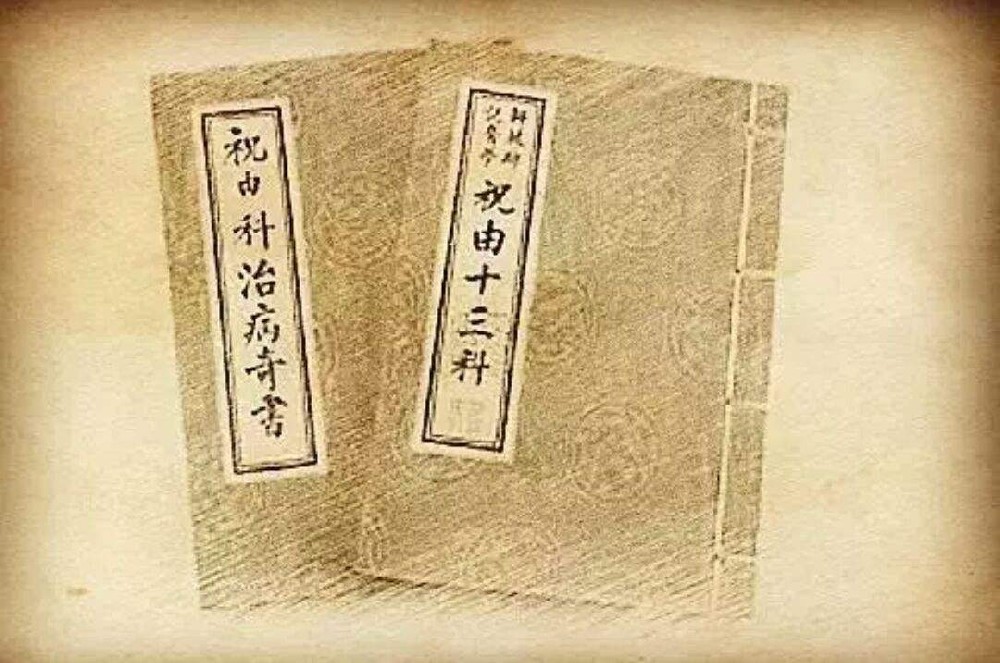 祝由科治病奇書
祝由十三科